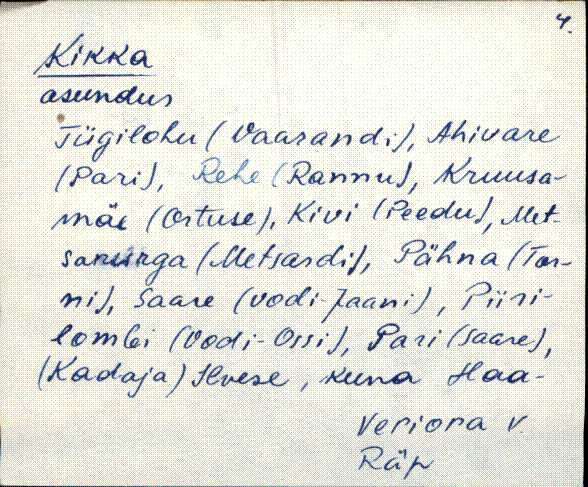 4.
Kikka
asundus
Tiigilohu (Vaarandi), Ahivare
(Pari), Rehe (Rannu), Kruusa-
mäe (Ortuse), Kivi (Peedu), Met-
sanurga (Metsardi), Pähna (Tor-
ni), Saare (Vodi-Jaani), Piiri-
lombi (Vodi-Ossi), Pari (Saare),
(Kadaja) Ilvese, kuna Haa-
Veriora v.
Räp